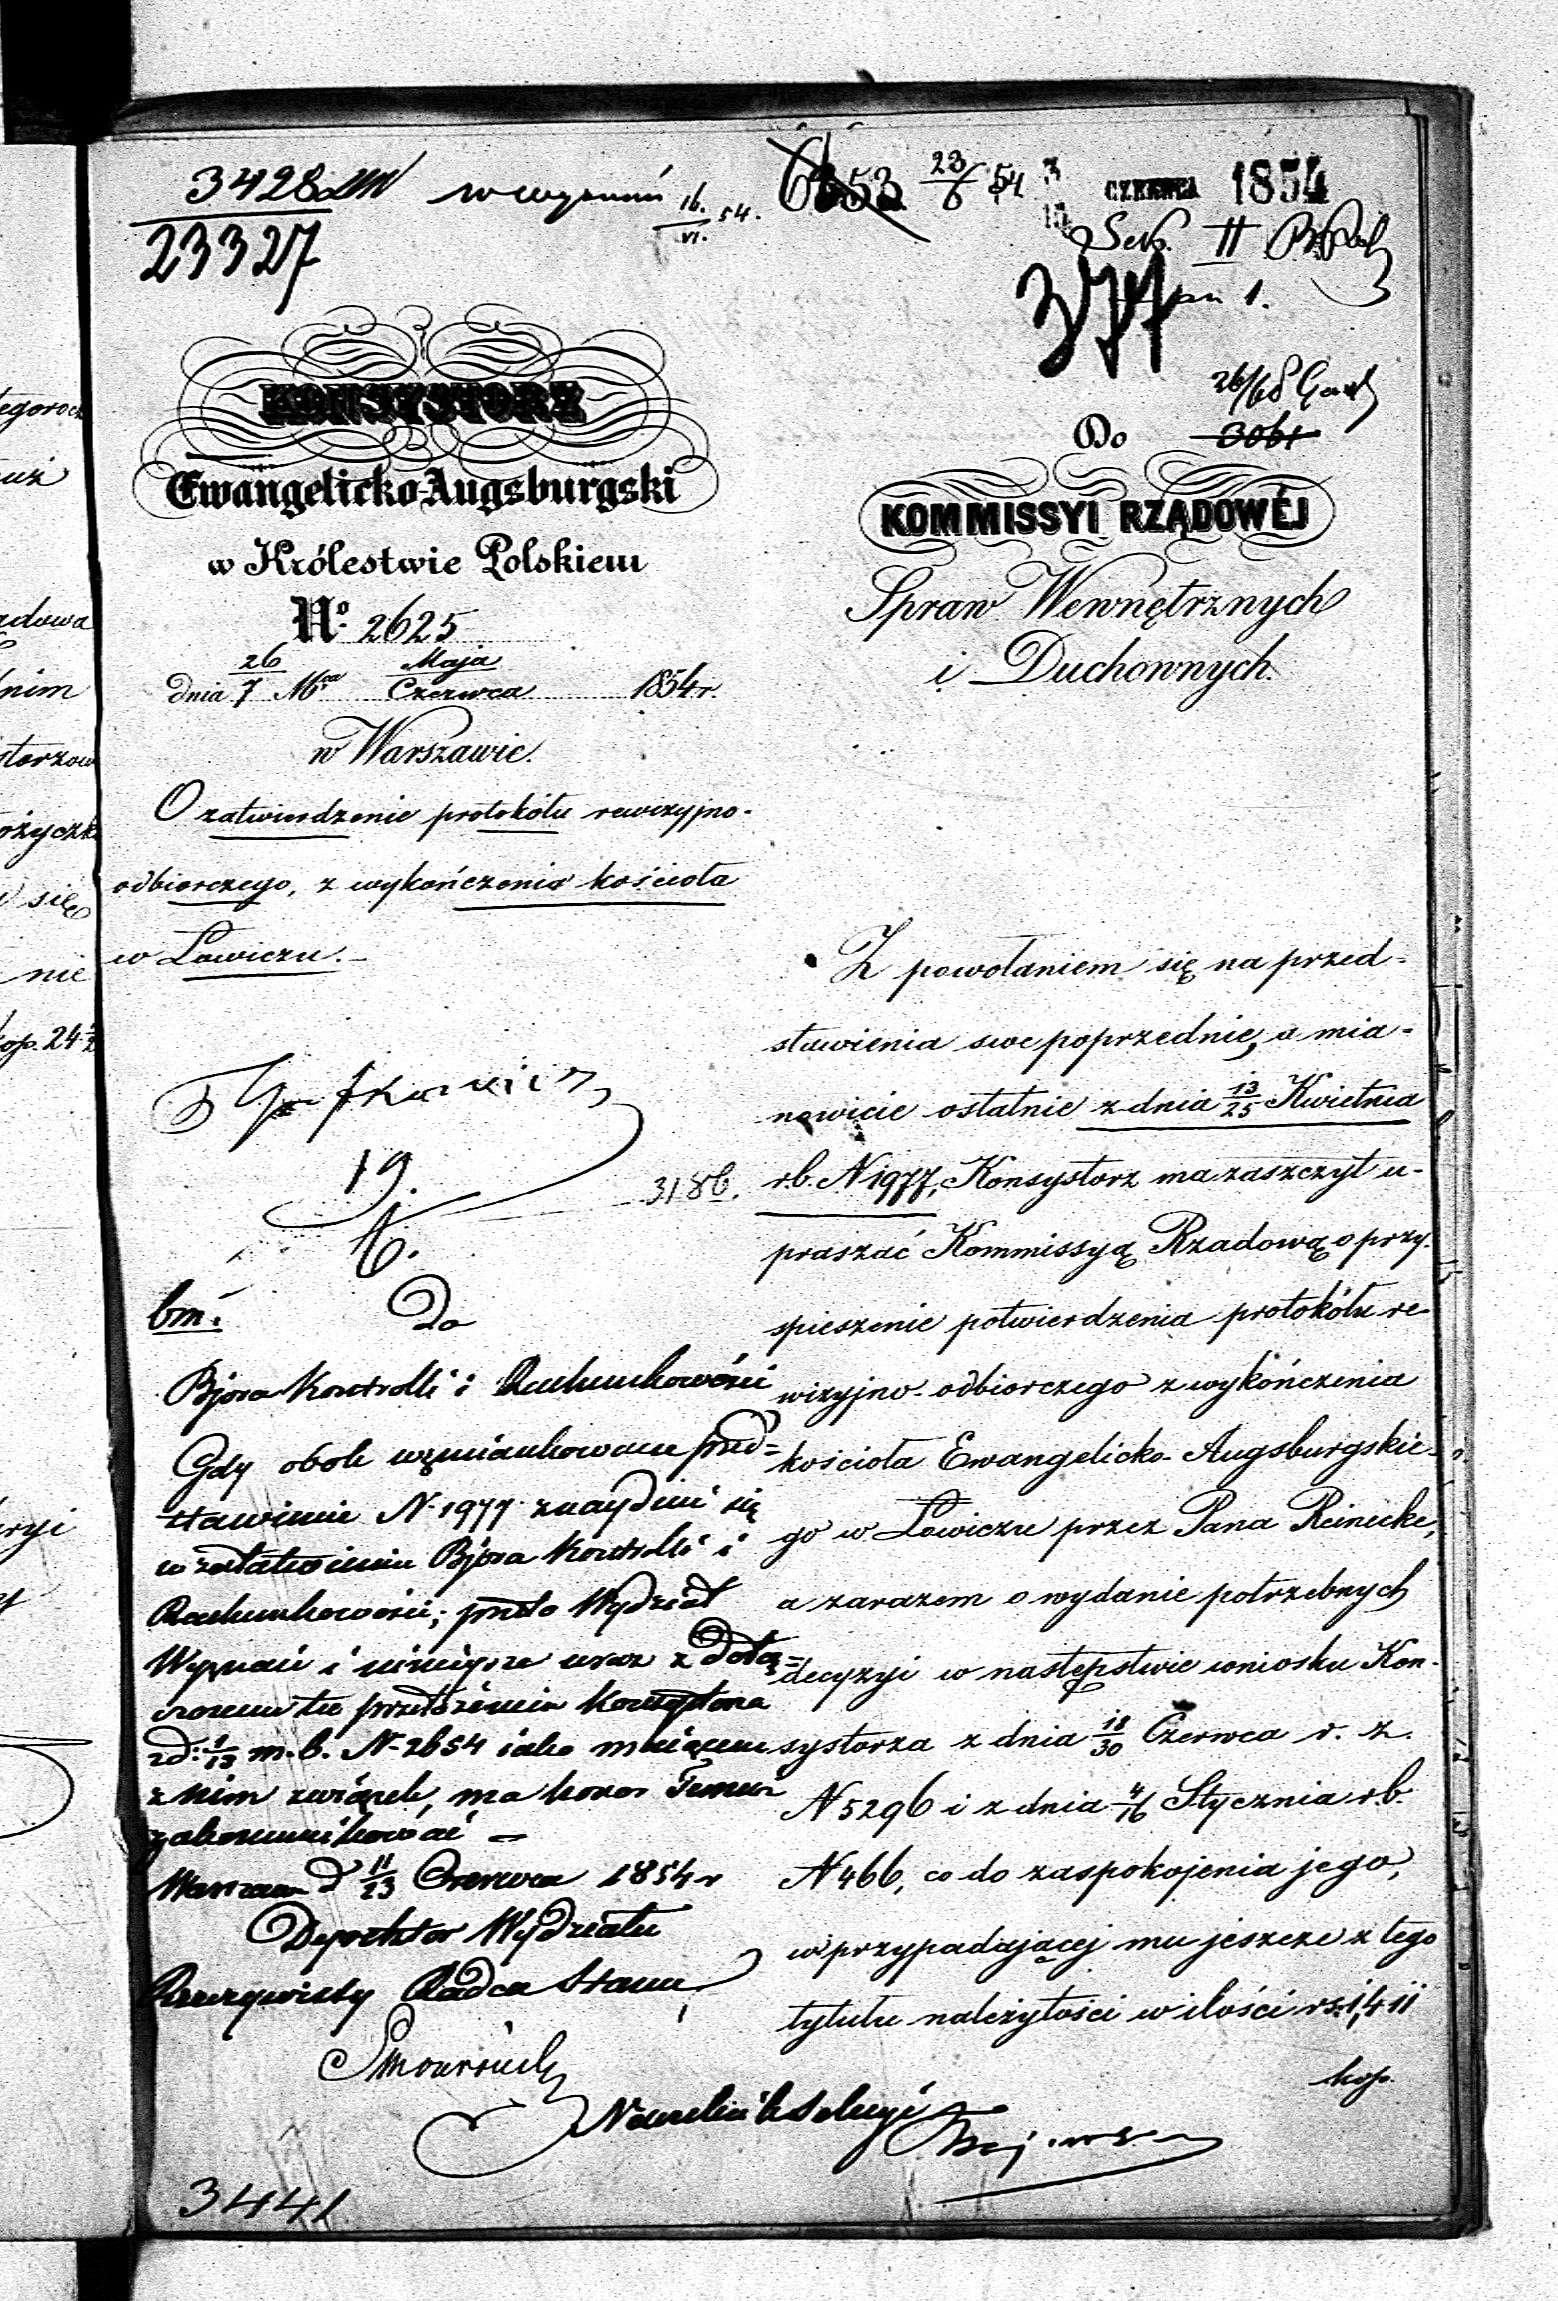 3428
23327
w wyznań 16/VI 54.
6653 23/6 54
3 CZERWCA 1854
15
Sek. II
pu 1.
KONSYSTORZ
Ewangelicko-Augsburgski
w Królestwie Polskiem
No. 2625
dnia 26/7 Mca Maja/Czerwca 1854 r.
w Warszawie.
O zatwierdzenie protokółu rewizyjno-
odbiorczego, z wykończenia kościoła
w Łowiczu.-
19.
6.
3186.
bm. Do
Bjóra Kontrolli i Rachunkowości
Gdy obok wzmiankowane przed=
stawienie N. 1977 znayduie się
w załatwieniu Bjóra Kontrolli i
Rachunkowości; przeto Wydział
Wyznań i ninieysze wraz z dołą=
czonem tu przedłożeniem Konsystorza
z d: 1/13 m.b. N. 2654 iako maiącem
z nim związek, ma honor Temuż
zakomunikować -
Warszawa d 11/23 Czerwca 1854 r
Dyrektor Wydziału
Rzeczywisty Radca Stanu,
Naczelnik Sekcyi
3441
26/6
Do 3061
KOMMISSYI RZĄDOWÉJ
Spraw Wewnętrznych
i Duchownych.
Z powołaniem się na przed=
stawienia swe poprzednie, a mia=
nowicie ostatnie z dnia 13/25 Kwietnia
r.b. N 1977, Konsystorz ma zaszczyt u-
praszać Kommissyą Rządową o przy-
spieszenie potwierdzenia protokółu re-
wizyjno-odbiorczego z wykończenia
kościoła Ewangelicko-Augsburgskie-
go w Łowiczu przez Pana Reinecke,
a zarazem o wydanie potrzebnych
decyzyi w następstwie wniosku Kon-
systorza z dnia 18/30 Czerwca r. z.
N 5296 i z dnia 4/16 Stycznia r.b.
N 466, co do zaspokojenia jego,
w przypadającej mu jeszcze z tego
tytułu należytości w ilości rs. 1,411
kop.